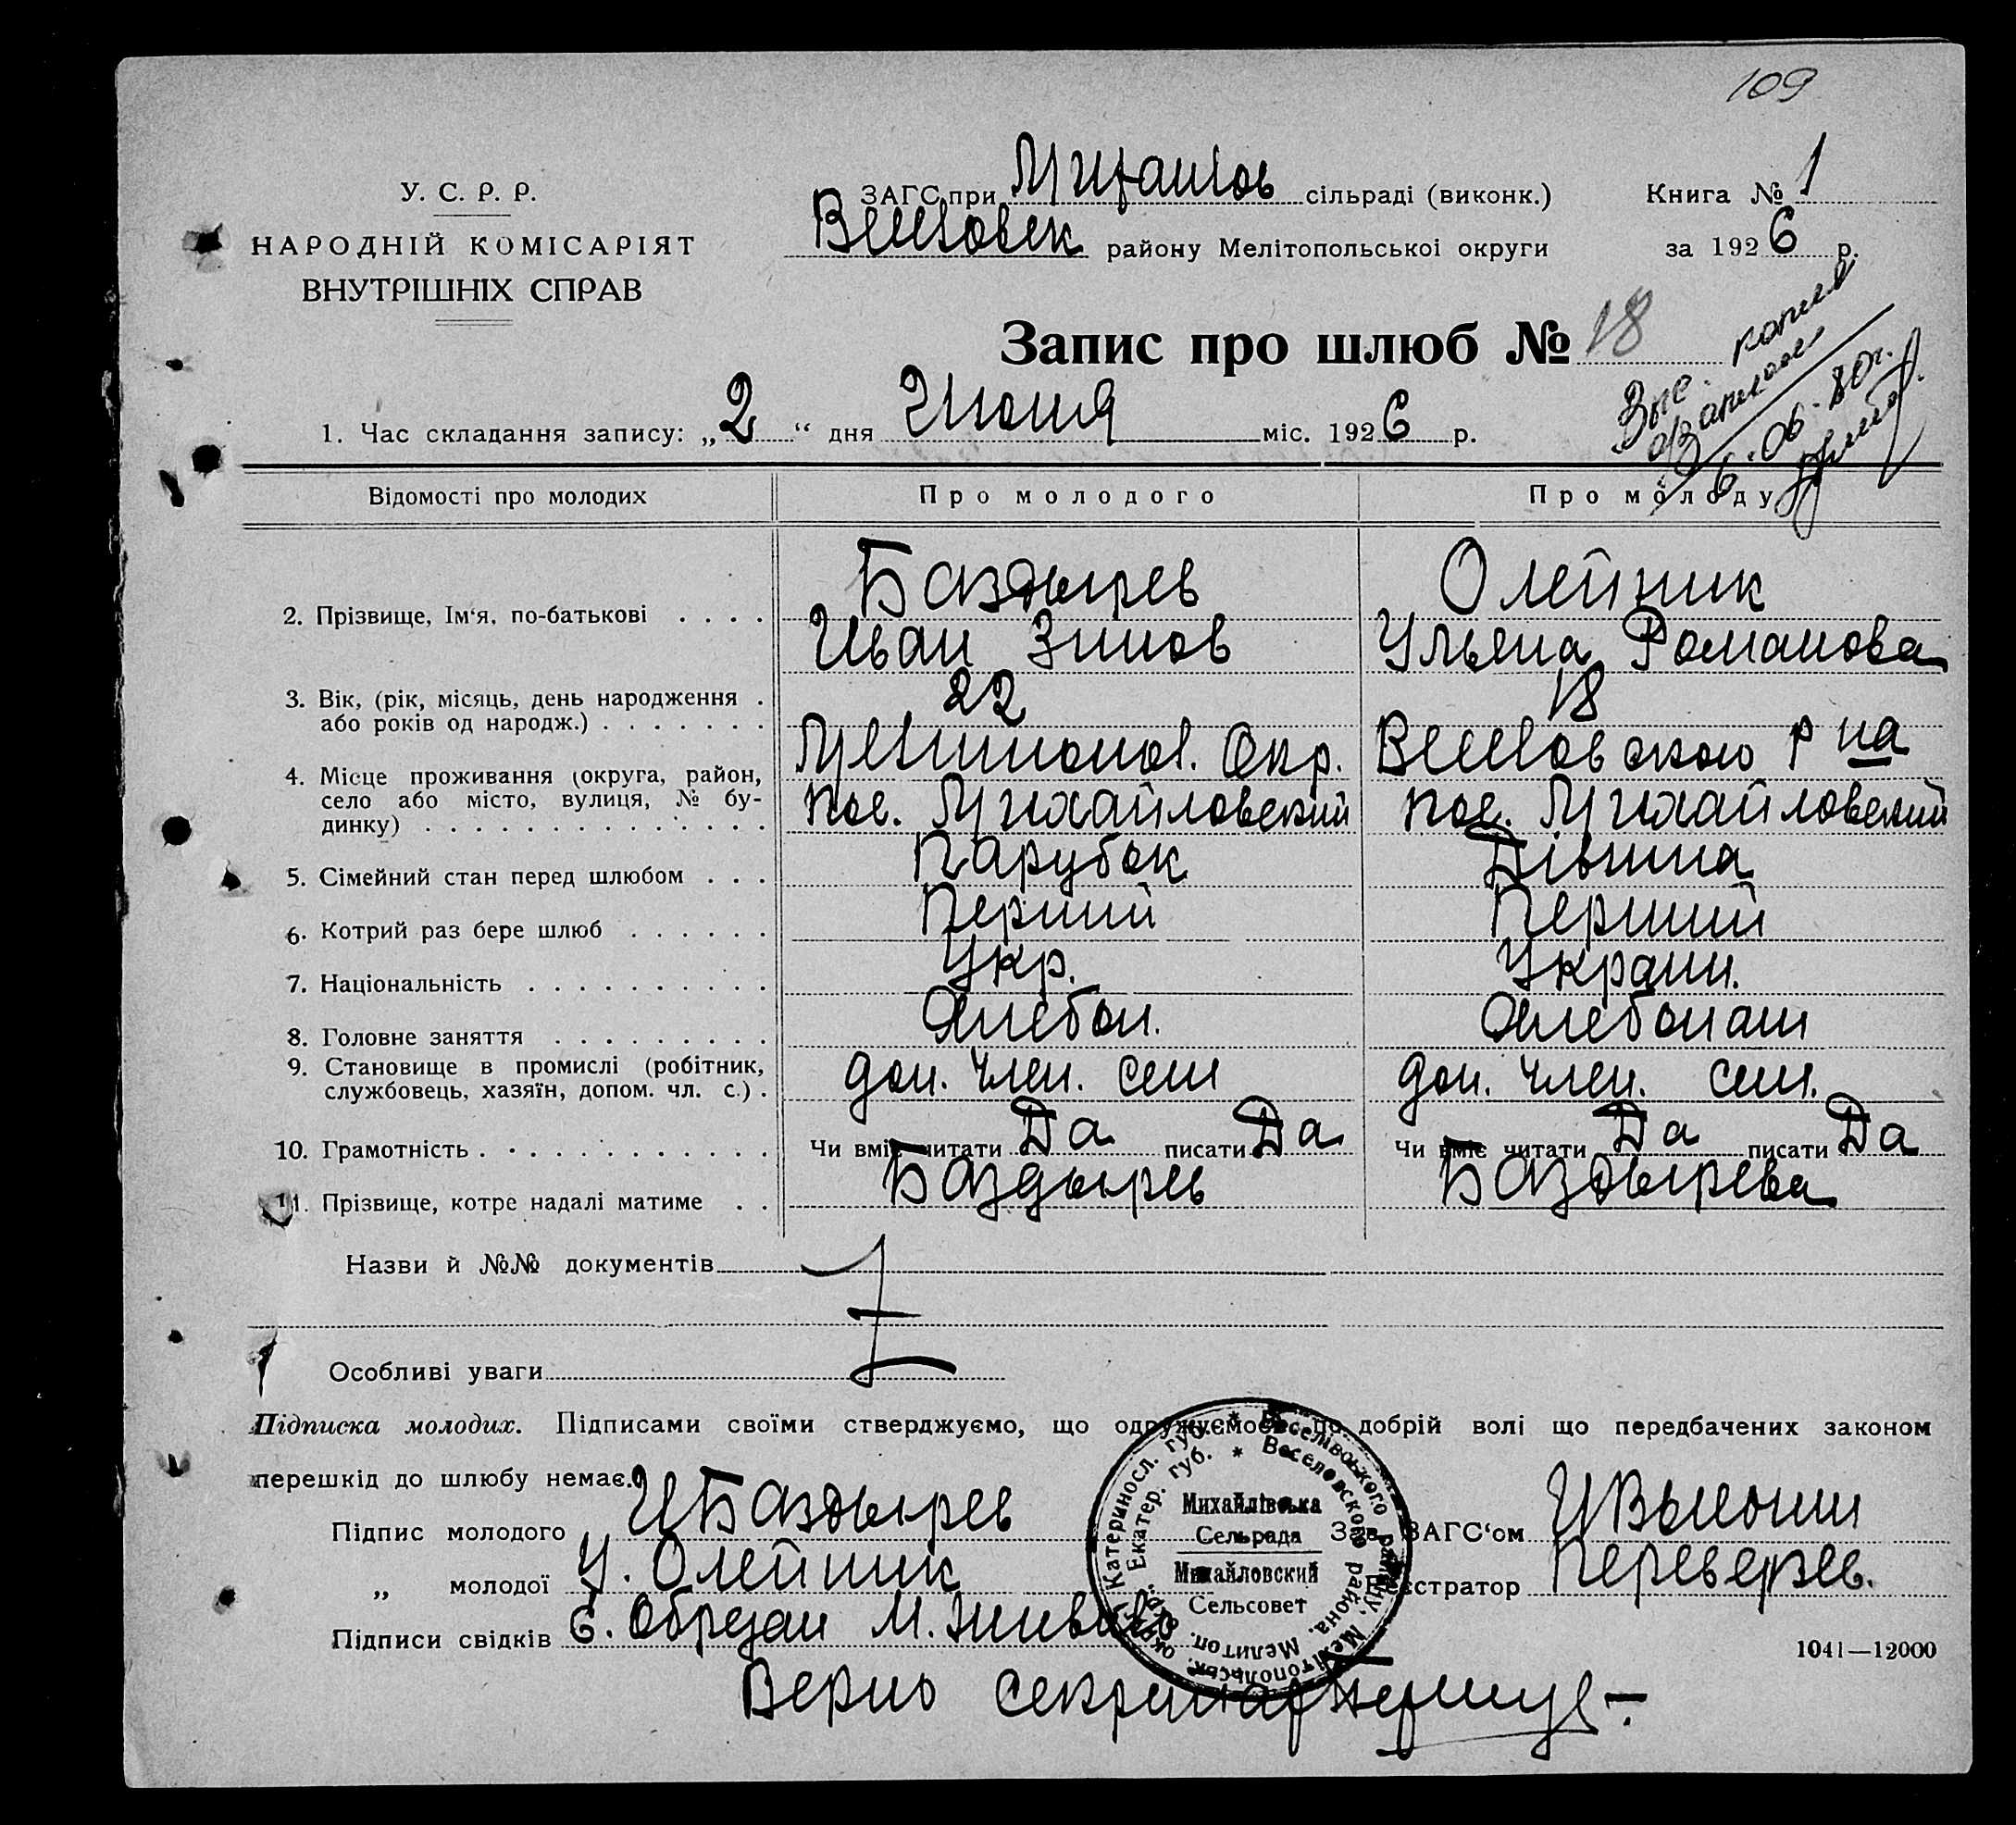 109
У. С. Р. Р.
НАРОДНІЙ КОМІСАРІЯТ
ВНУТРІШНІХ СПРАВ
ЗАГС при сільраді (виконк.)
району Мелітопольської округи
Книга № 1
за 1926 р.
Запис про шлюб № 18
6.06.80г.
1. Час складання запису: „2“ дня Июня міс. 1926 р.
Відомості про молодих Про молодого Про молоду
2. Прізвище, Ім‘я, по-батькові . . . . Баздырев Олейник
Иван Зинов Ульяна Романова
3. Вік, (рік, місяць, день народження . або років од народж.) . . . . . . . 22 18
4. Місце проживання (округа, район, Окр. р на
село або місто, вулиця, № бу- пос. Михайловский пос. Михайловский
динку) . . . . . . . . . . . . . .
5. Сімейний стан перед шлюбом . . . Парубок Дівчина
6. Котрий раз бере шлюб . . . . . . Перший Перший
7. Національність . . . . . . . . . . Укр. Украин.
8. Головне заняття . . . . . . . . . Хлебоп. Хлебопаш
9. Становище в промислі (робітник, доп. член. сем доп. член. сем.
службовець, хазяїн, допом. чл. с.) .
10. Грамотність . . . . . . . . . . . . Чи вміє читати Да писати Да Чи вміє читати Да писати Да
11. Прізвище, котре надалі матиме . . Баздырев Баздырева
Назви й №№ документів
Особливі уваги
Підписка молодих. Підписами своїми стверджуємо, що одружуємось по добрій волі що передбачених законом
перешкід до шлюбу немає.
Підпис молодого И Баздырев Зав. ЗАГС‘ом
„ молодої У. Олейник Реєстратор Переверзев.
Підписи свідків Є. Обрезан М.
1041—12000
Верно секретар
Катериносл. губ. * Веселівського району, Мелітопольськ. окр.
Екатер. губ. * Веселовского района, Мелитоп. окр.
Михайлівська
Сельрада
Михайловский
Сельсовет